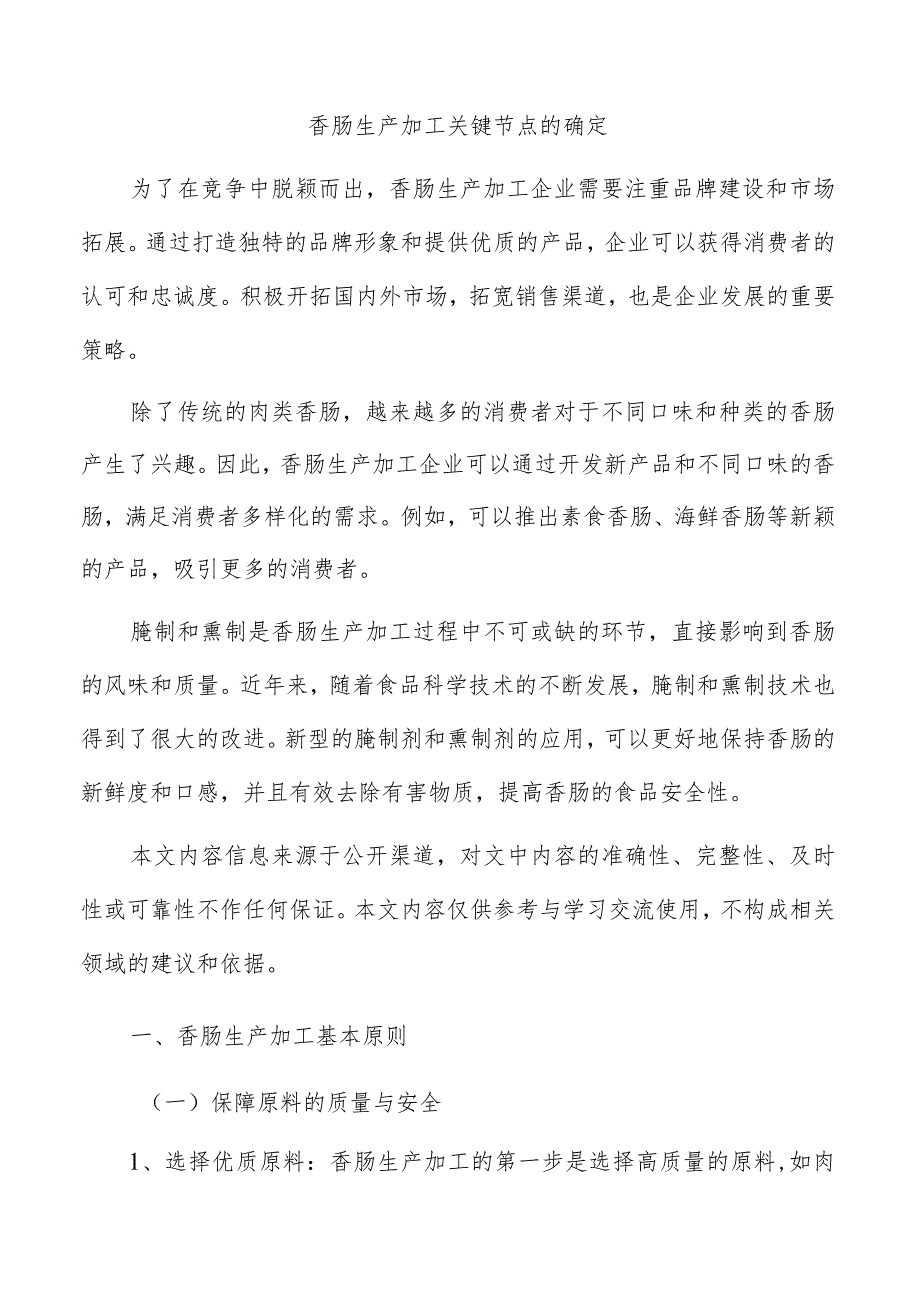 香肠生产加工关键节点的确定
为了在竞争中脱颖而出，香肠生产加工企业需要注重品牌建设和市场
拓展。通过打造独特的品牌形象和提供优质的产品，企业可以获得消费者的
认可和忠诚度。积极开拓国内外市场，拓宽销售渠道，也是企业发展的重要
策略。
除了传统的肉类香肠，越来越多的消费者对于不同口味和种类的香肠
产生了兴趣。因此，香肠生产加工企业可以通过开发新产品和不同口味的香
肠，满足消费者多样化的需求。例如，可以推出素食香肠、海鲜香肠等新颖
的产品，吸引更多的消费者。
腌制和熏制是香肠生产加工过程中不可或缺的环节，直接影响到香肠
的风味和质量。近年来，随着食品科学技术的不断发展，腌制和熏制技术也
得到了很大的改进。新型的腌制剂和熏制剂的应用，可以更好地保持香肠的
新鲜度和口感，并且有效去除有害物质，提高香肠的食品安全性。
本文内容信息来源于公开渠道，对文中内容的准确性、完整性、及时
性或可靠性不作任何保证。本文内容仅供参考与学习交流使用，不构成相关
领域的建议和依据。
一、香肠生产加工基本原则
（一）保障原料的质量与安全
1、选择优质原料：香肠生产加工的第一步是选择高质量的原料,如肉